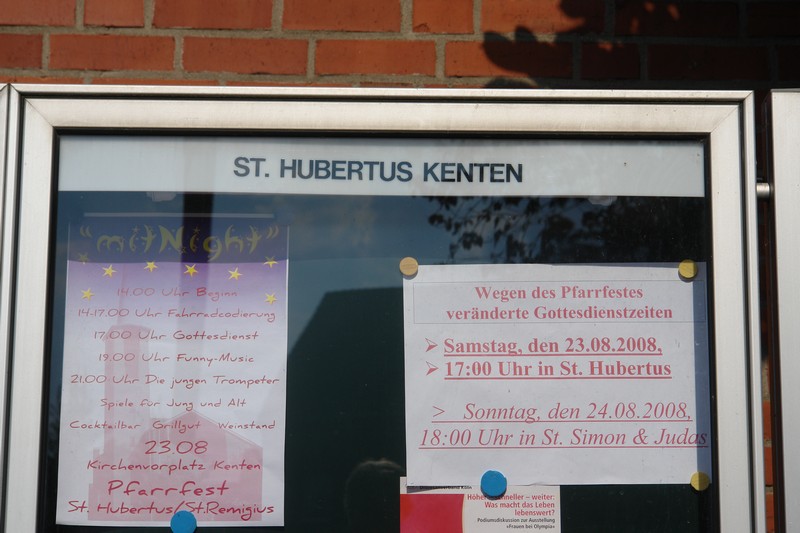 ST. HUBERTUS KENTEN
"mitNight"
14.00 Uhr Beginn
14-17.00 Uhr Fahrradcodierung
17.00 Uhr Gottesdienst
19.00 Uhr Funny-Music
21.00 Uhr Die jungen Trompeter
Spiele für Jung und Alt
Cocktailbar Grillgut Weinstand
23.08
Kirchenvorplatz Kenten
Pfarrfest
St. Hubertus/St.Remigius
Wegen des Pfarrfestes
veränderte Gottesdienstzeiten
➢ Samstag, den 23.08.2008,
➢ 17:00 Uhr in St. Hubertus
> Sonntag, den 24.08.2008,
18:00 Uhr in St. Simon & Judas
Höher schneller – weiter:
Was macht das Leben
lebenswert?
Podiumsdiskussion zur Ausstellung
»Frauen bei Olympia«